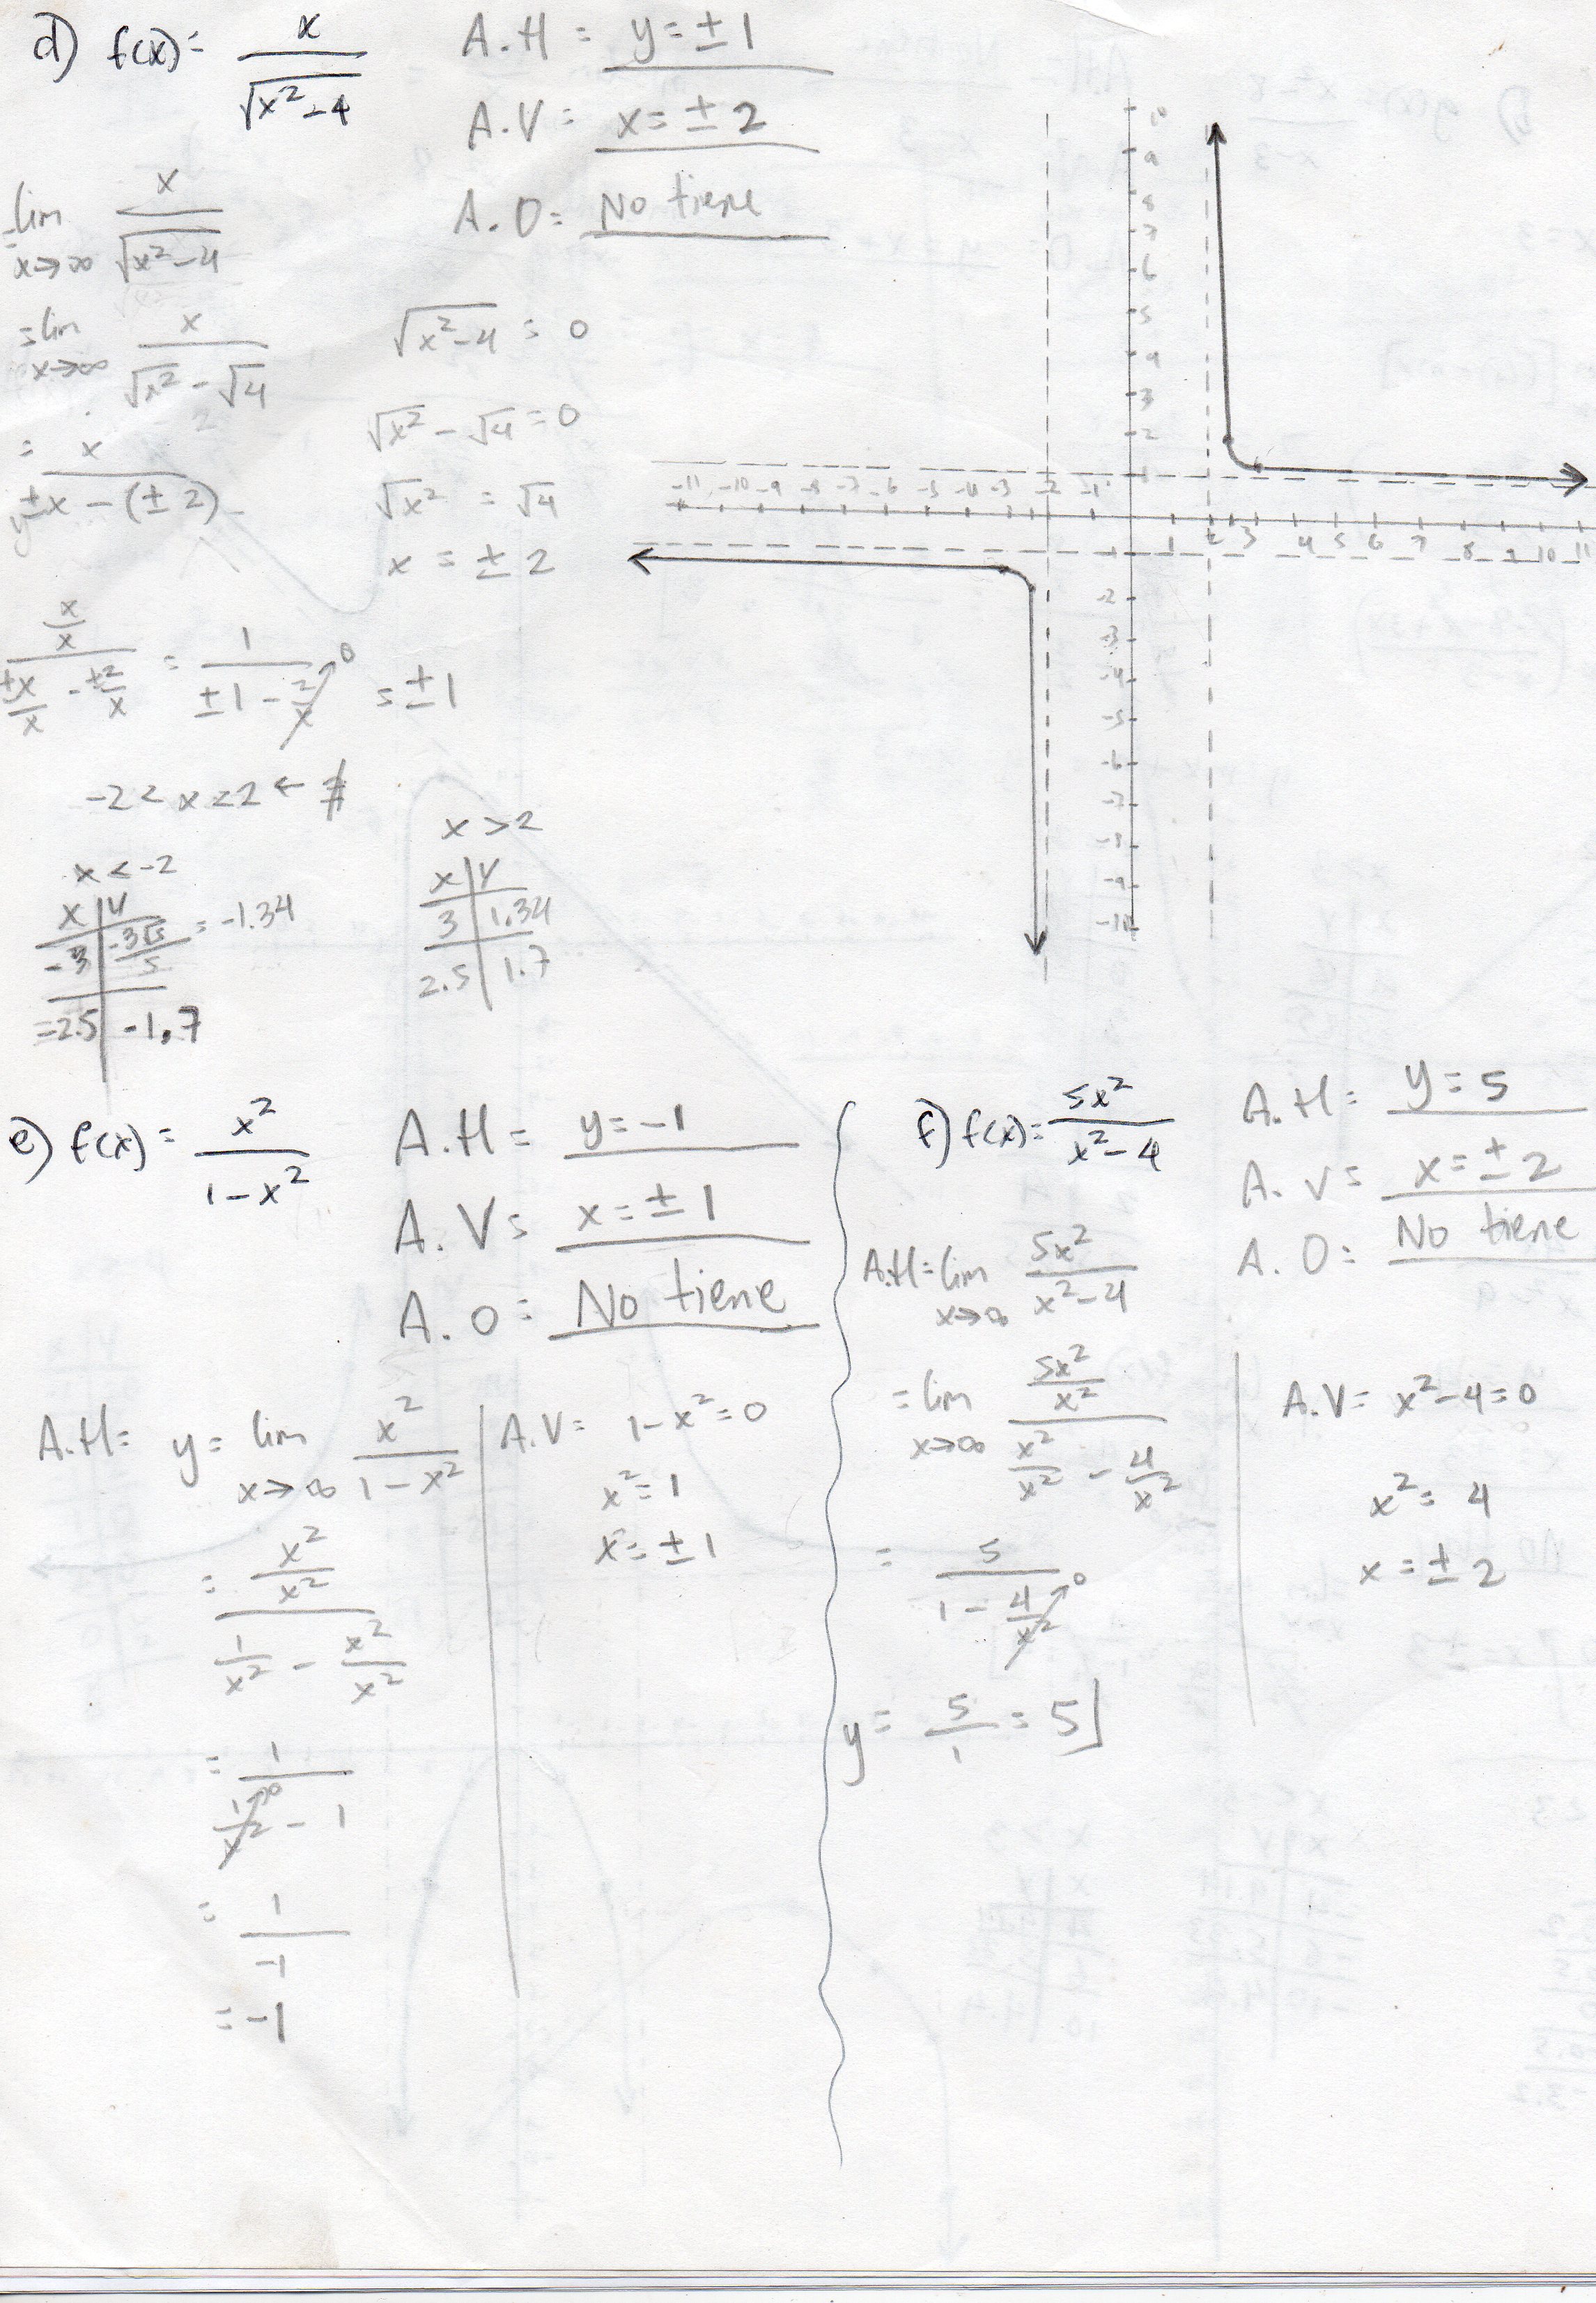 d) f(x) = x / √(x²-4)
A.H = y = ±1
A.V = x = ±2
A.O = No tiene
lim x→∞ x / √(x²-4)
= lim x→∞ x / (√x² - √4)
= x / (±x - (±2))
(x/x) / (±x/x - ±2/x) = 1 / (±1 - 2/x) →0 = ±1
√(x²-4) = 0
√x² - √4 = 0
√x² = √4
x = ±2
-2 < x < 2 ← ∄
x < -2
x | y
-3 | -3√5/5 = -1.34
-2.5 | -1.7
x > 2
x | y
3 | 1.34
2.5 | 1.7
10
9
8
7
6
5
4
3
2
1
-11 -10 -9 -8 -7 -6 -5 -4 -3 -2 -1
1 2 3 4 5 6 7 8 9 10 11
-2
-3
-4
-5
-6
-7
-8
-9
-10
e) f(x) = x² / (1-x²)
A.H = y = -1
A.V = x = ±1
A.O = No tiene
A.H = y = lim x→∞ x² / (1-x²)
= (x²/x²) / (1/x² - x²/x²)
= 1 / (1/x² →0 - 1)
= 1 / -1
= -1
A.V = 1-x² = 0
x² = 1
x = ±1
f) f(x) = 5x² / (x²-4)
A.H = y = 5
A.V = x = ±2
A.O = No tiene
A.H = lim x→∞ 5x² / (x²-4)
= lim x→∞ (5x²/x²) / (x²/x² - 4/x²)
= 5 / (1 - 4/x² →0)
y = 5/1 = 5
A.V = x²-4 = 0
x² = 4
x = ±2